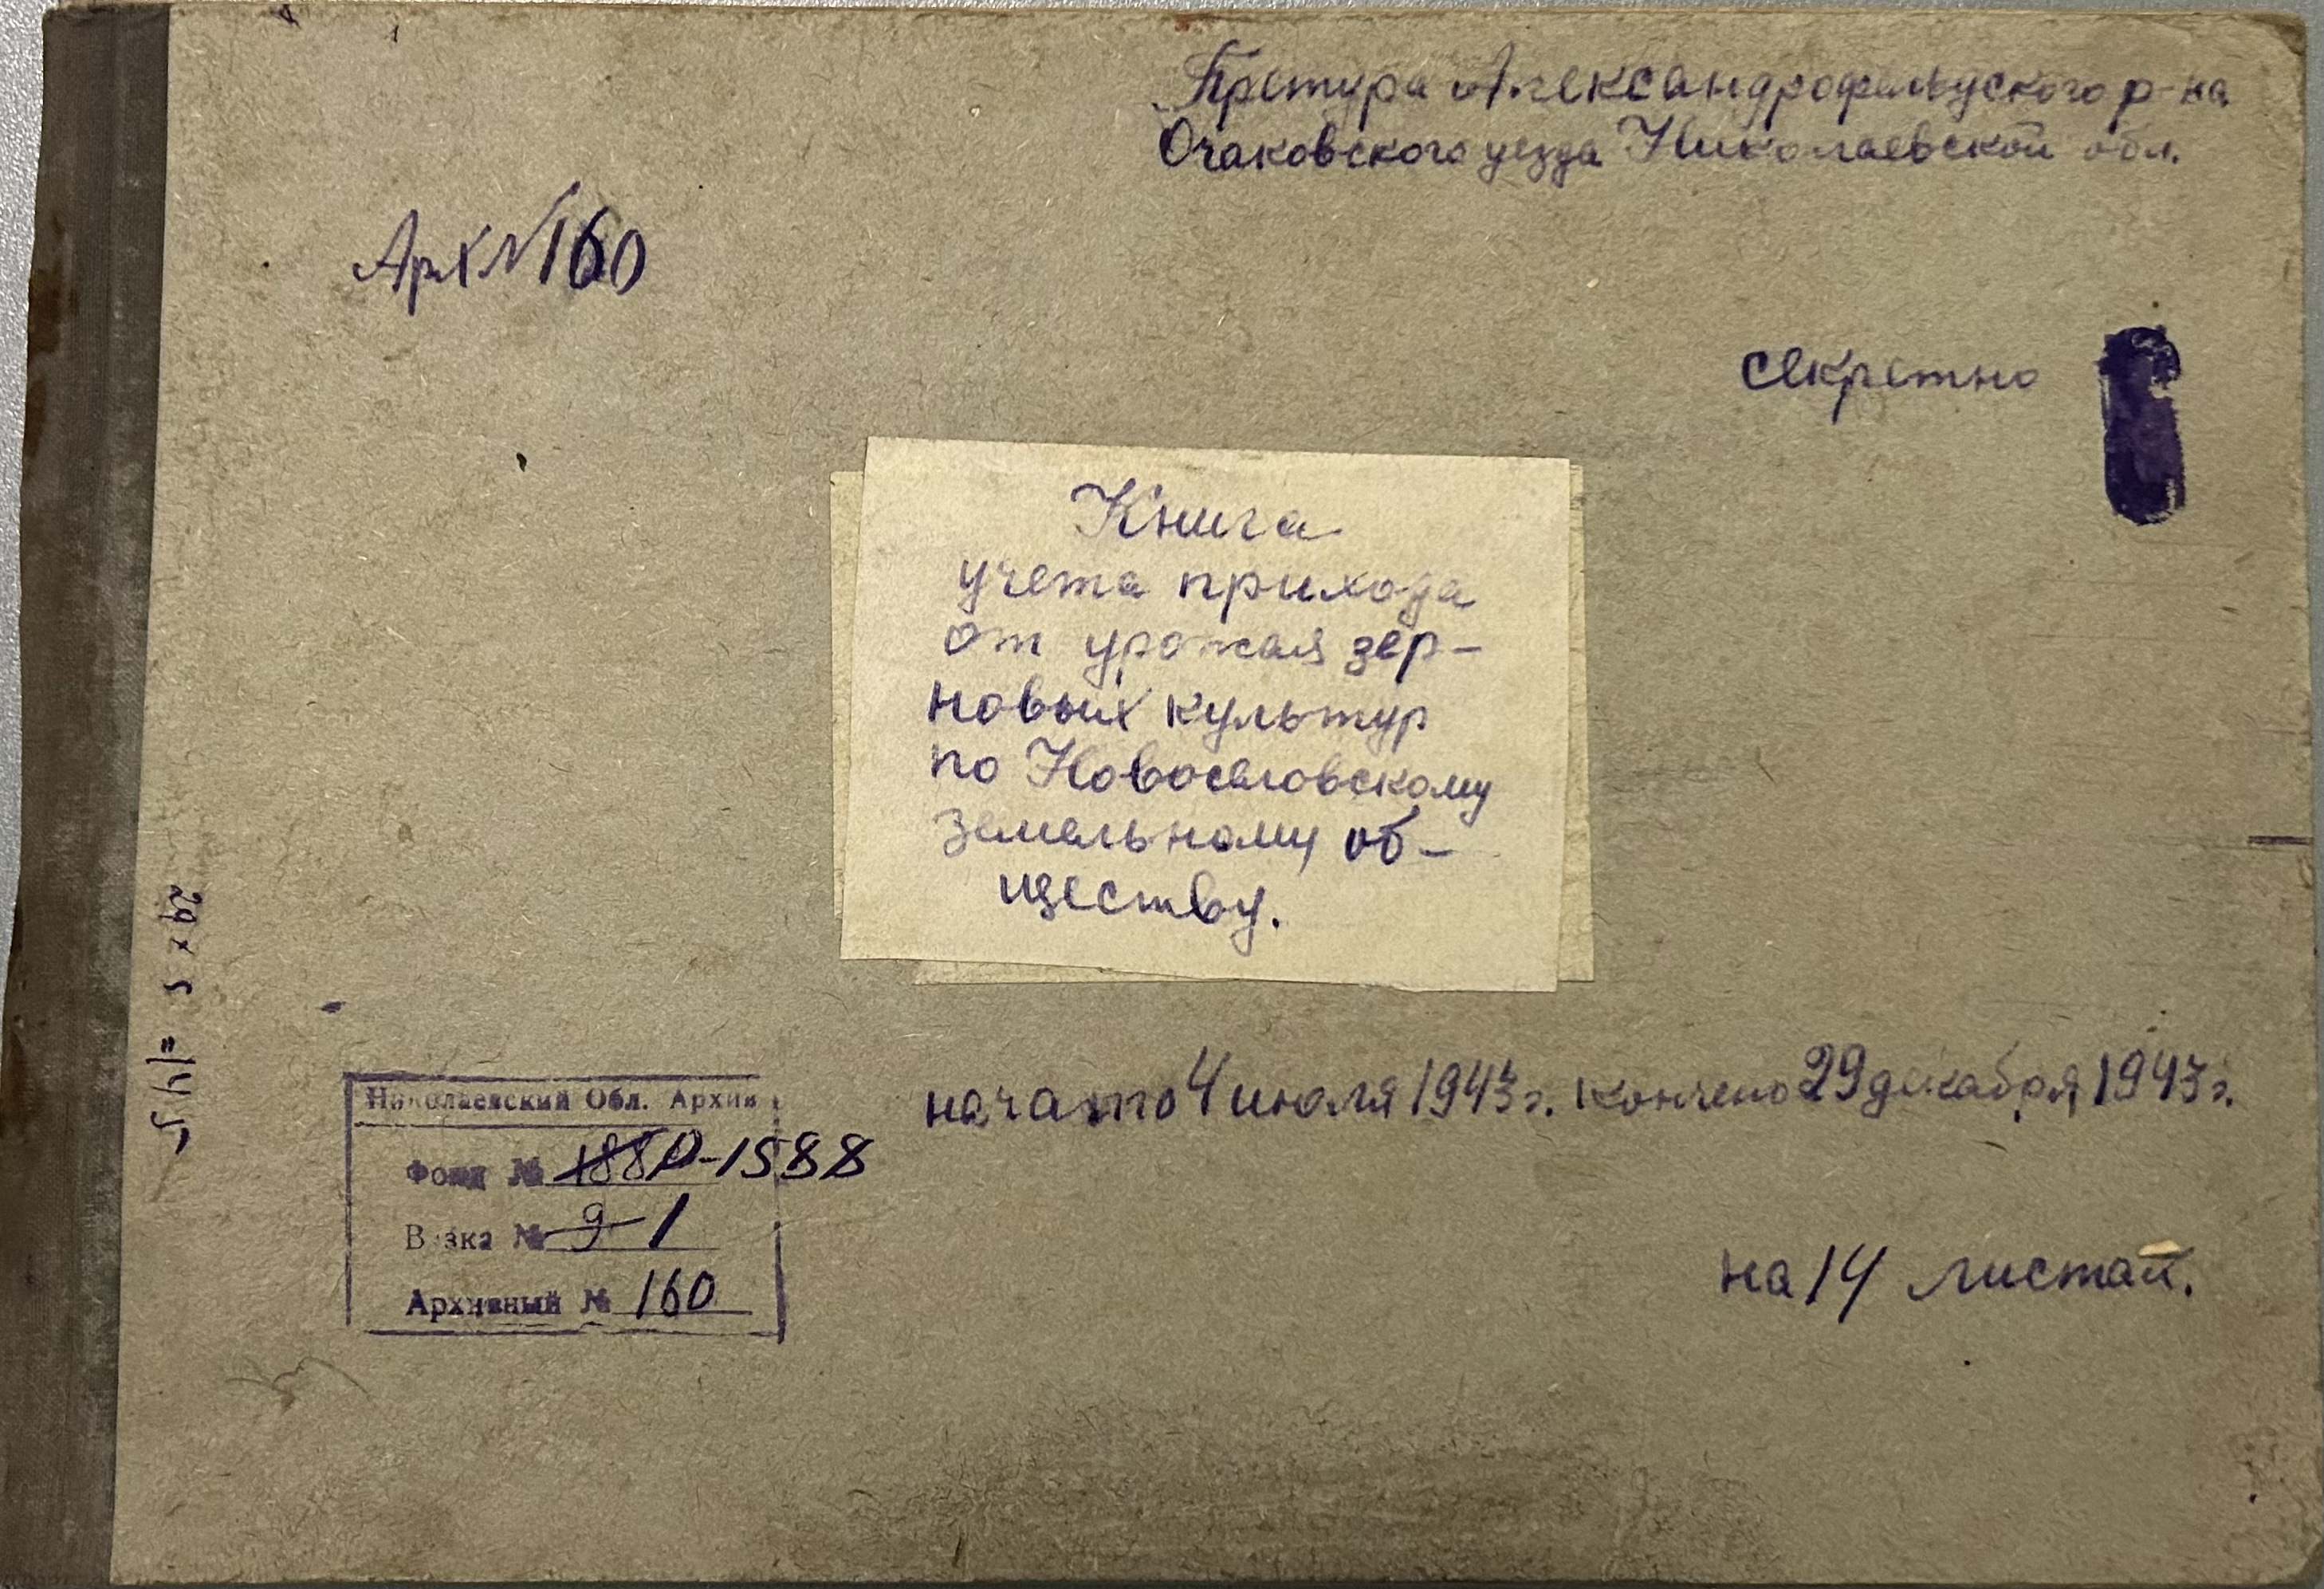 Претура Александрофельдского р-на
Очаковского уезда Николаевской обл.
Арх № 160
секретно
Книга
учета прихода
от урожая зер-
новых культур
по Новоселовскому
земельному об-
ществу.
29 х 5 = 145
начато 4 июля 1943 г. кончено 29 декабря 1943 г.
Николаевский Обл. Архив
Фонд № 1880 Р-1588
Вязка № 9 1
Архивный № 160
на 14 листах.